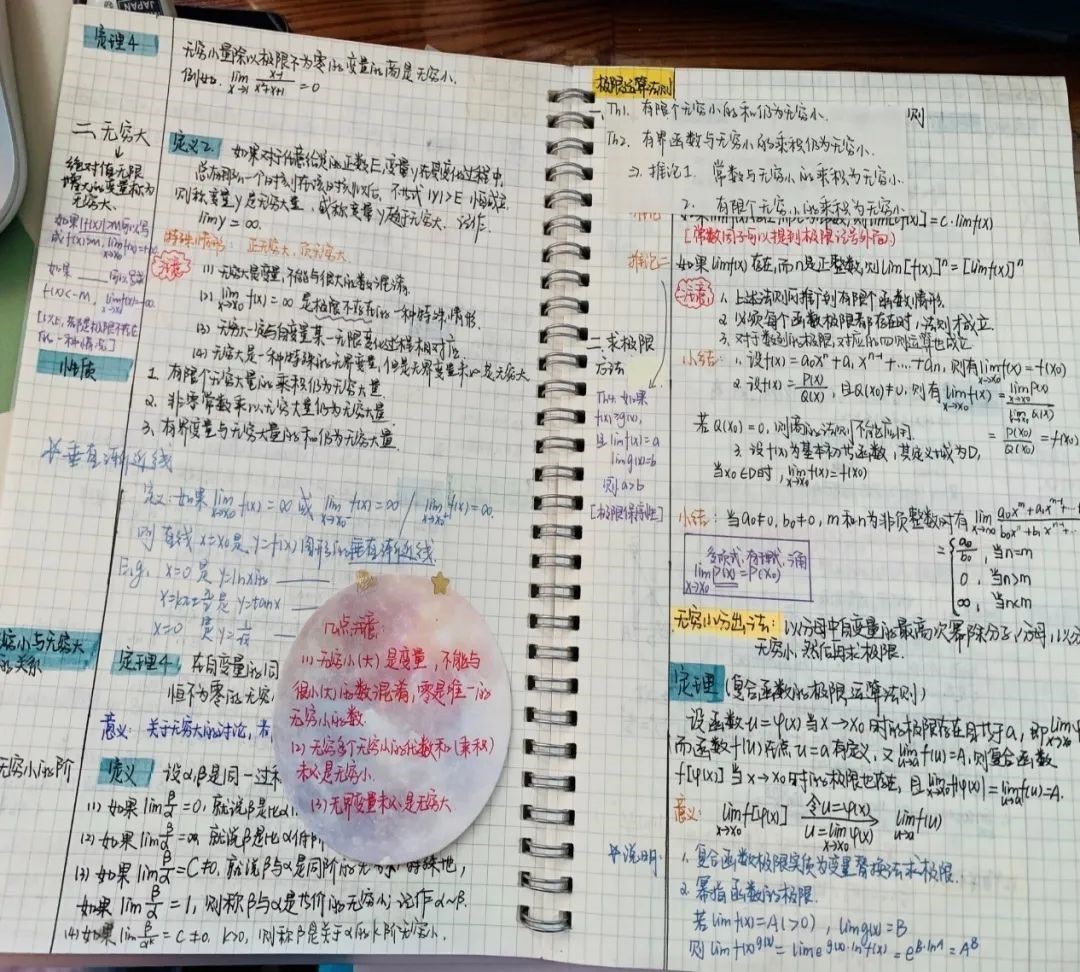 JAPAN
定理4
无穷小量除以极限不为零的变量的商是无穷小.
例如. lim x→1 (x-1)/(x²+x+1) = 0
二、无穷大
↓
绝对值无限
增大的变量称为
无穷大.
定义2.
如果对于任意给定的正数E,变量y在其变化过程中,
总有那么一个时刻,在该时刻以后, 不等式|y|>E 恒成立,
则称变量y是无穷大量, 或称变量y趋于无穷大. 记作.
lim y = ∞.
如果|f(x)|>M可以写
成f(x)>M,
如果 可以写成
f(x)<-M,
特殊情形: 正无穷大, 负无穷大
注意
(1) 无穷大是变量,不能与很大的数混淆.
(2) lim x→x₀ f(x) = ∞ 是极限不存在的一种特殊情形.
(3) 无穷大一定与自变量某一无限变化过程相对应
(4) 无穷大是一种特殊的无界变量, 但是无界变量未必是无穷大
性质
1. 有限个无穷大量的乘积仍为无穷大量
2. 非零常数乘以无穷大量仍为无穷大量
3. 有界变量与无穷大量的和仍为无穷大量
垂直渐近线
定义:如果 lim x→x₀ f(x) = ∞ 或 lim x→x₀⁻ f(x) = ∞ / lim x→x₀⁺ f(x) = ∞.
则 直线 x=x₀是 y=f(x)图形的垂直渐近线
E.g. x=0 是 y=lnx的
x=kπ+π/2 是 y=tanx
x=0 是 y=1/x
穷小与无穷大
的关系
定理4 在自变量的同
恒不为零的无穷
意义: 关于无穷大的讨论,
无穷小的阶
定义 设α,β是同一过
(1) 如果 lim β/α = 0, 就说β是比α
(2) 如果 lim β/α = ∞, 就说β是比α低阶
(3) 如果 lim β/α = C≠0, 就说β与α是同阶的无穷小, 特殊地,
如果 lim β/α = 1, 则称β与α是等价的无穷小; 记作α~β.
(4) 如果 lim β/αᵏ = C≠0, k>0, 则称β是关于α的k阶无穷小.
几点注意:
(1) 无穷小(大)是变量, 不能与
很小(大)的数混淆, 零是唯一的
无穷小的数.
(2) 无穷多个无穷小的代数和(乘积)
未必是无穷小.
(3) 无界变量未必是无穷大
极限运算法则
一、Th1. 有限个无穷小的和仍为无穷小.
则
Th2. 有界函数与无穷小的乘积仍为无穷小.
⇒ 推论1. 常数与无穷小的乘积为无穷小.
2. 有限个无穷小的乘积为无穷小
= c·lim f(x)
[常数因子可以提到极限记号外面]
推论二
如果limf(x)存在,而n是正整数,则lim[f(x)]ⁿ=[limf(x)]ⁿ
注意
1. 上述法则可推广到有限个函数情形.
2. 必须每个函数极限都存在时, 法则才成立.
3. 对于数列的极限,对应的四则运算也成立
小结: 1. 设f(x) = a₀xⁿ+a₁xⁿ⁻¹+...+aₙ, 则有 lim x→x₀ f(x) = f(x₀)
2. 设f(x) = P(x)/Q(x), 且Q(x₀)≠0, 则有 lim x→x₀ f(x) = lim x→x₀ P(x) / lim x→x₀ Q(x)
= P(x₀)/Q(x₀) = f(x₀)
若Q(x₀)=0, 则商的法则不能应用.
3. 设f(x)为基本初等函数, 其定义域为D,
当x₀∈D时, lim x→x₀ f(x)=f(x₀)
二 求极限
方法
Th4 如果
f(x)≥g(x),
且limf(x)=a
limg(x)=b
则a>b
[极限保序性]
小结: 当a₀≠0, b₀≠0, m和n为非负整数时有 lim x→∞ (a₀xᵐ+a₁xᵐ⁻¹ / b₀xⁿ+b₁xⁿ⁻¹+
= { a₀/b₀, 当n=m
0, 当n>m
∞, 当n<m
多项式,有理式
lim x→x₀ P(x) = P(x₀)
无穷小分出法: 以分母中自变量的最高次幂除分子,分母,以分
无穷小,然后再求极限.
定理 (复合函数的极限运算法则)
设函数 u=φ(x) 当x→x₀时的极限存在且等于a, 即lim x→x₀
而函数f(u)在点 u=a有定义, 又lim u→a f(u)=A, 则复合函数
f[φ(x)] 当x→x₀时的极限也存在, 且 lim x→x₀ f[φ(x)] = lim u→a f(u)=A.
意义: lim x→x₀ f[φ(x)] 令u=φ(x) / u=lim x→x₀ φ(x) → lim u→a f(u)
说明:
1. 复合函数极限实质为变量替换法求极限.
2. 幂指函数的极限.
若 lim f(x)=A(>0), lim g(x)=B
则 lim f(x)^g(x) = lim e^g(x)·ln f(x) = e^B·lnA = A^B